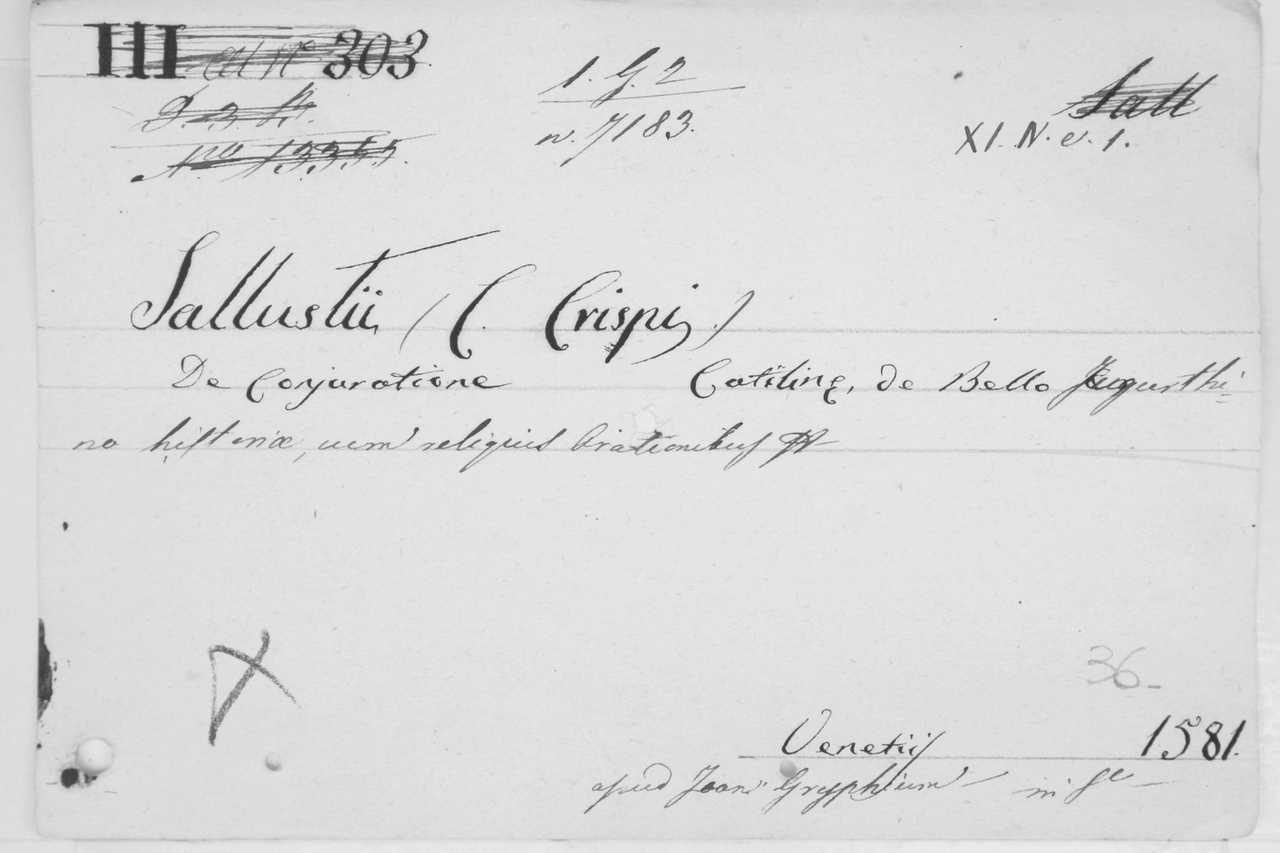 III 303
1. G. 2
n. 7183.
Sall
XI. N. e. 1.
Sallustii (C. Crispi)
De Conjuratione Catilinę, de Bello Jugurthi-
no historiæ, cum reliquis Orationibus
36-
Venetiis 1581.
apud Joan: Gryphium in